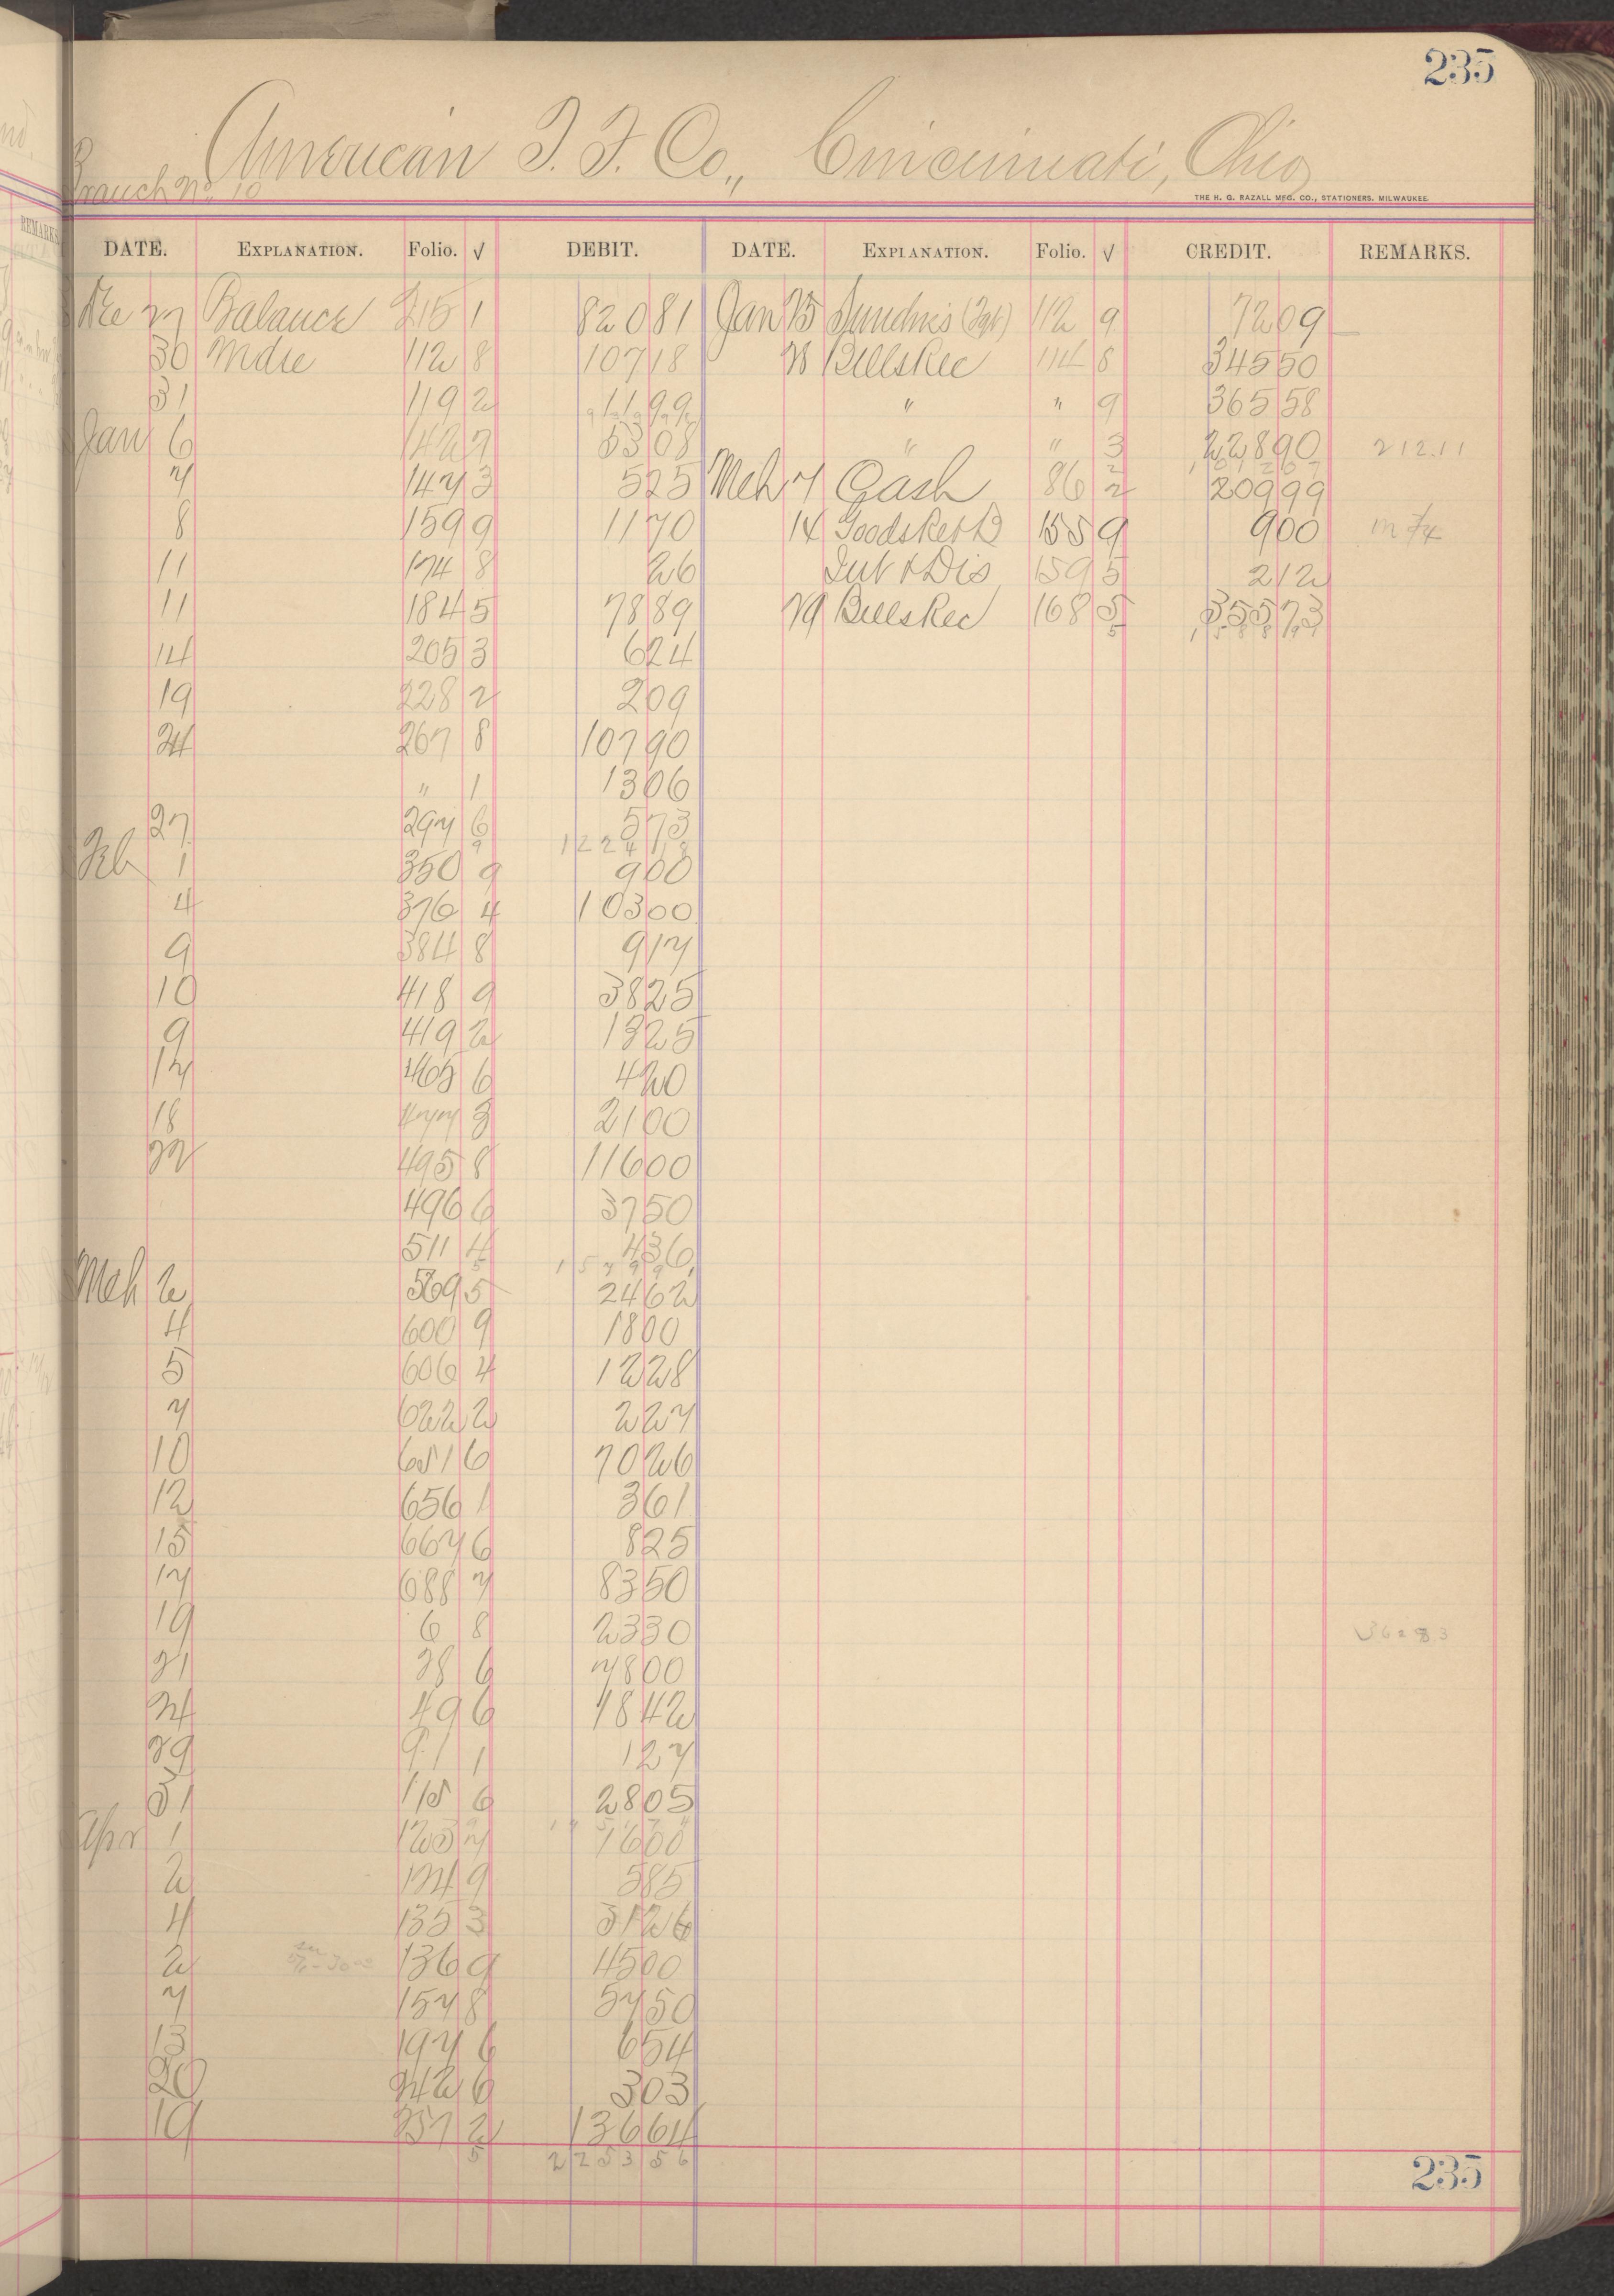 235
American T. F. Co., Cincinnati, Ohio
Branch No. 10
THE H. G. RAZALL MFG. CO., STATIONERS, MILWAUKEE.
DATE. EXPLANATION. Folio. √ DEBIT. DATE. EXPLANATION. Folio. √ CREDIT. REMARKS.
Dec 27 Balance 215 1 820 81 Jan 25 Sundries 112 9 72 09
30 Mdse 112 8 107 18 28 Bills Rec 114 8 345 50
31 119 2 11 99 " " 9 365 58
Jan 6 142 7 53 08 " " 3 228 90 212.11
7 147 3 5 25 Mch 7 Cash 86 2 209 99
8 159 9 11 70 14 Goods Retd 155 9 9 00
11 174 8 26 Int & Dis 159 5 2 12
11 184 5 78 89 29 Bills Rec 168 5 355 73
14 205 3 6 24
19 228 2 2 09
24 267 8 107 90
" 1 13 06
27 297 6 5 73
1 2 2 4 1 8
Feb 1 350 9 9 00
4 376 4 103 00
9 384 8 9 17
10 418 9 38 25
9 419 2 13 25
17 465 6 4 20
18 477 3 21 00
22 495 8 116 00
496 6 37 50
511 4 4 36
Mch 2 569 5 24 62
4 600 9 18 00
5 606 4 12 28
7 622 2 2 27
10 651 6 70 26
12 656 1 3 61
15 667 6 8 25
17 688 7 83 50
19 6 8 23 30
21 28 6 78 00
24 49 6 18 42
29 91 1 1 27
31 115 6 28 05
Apr 1 125 7 16 00
2 124 9 5 85
4 135 3 31 26
2 136 9 45 00
7 157 8 57 50
13 197 6 6 54
20 242 6 3 03
19 257 2 136 64
5 2 2 5 3 5 6
235